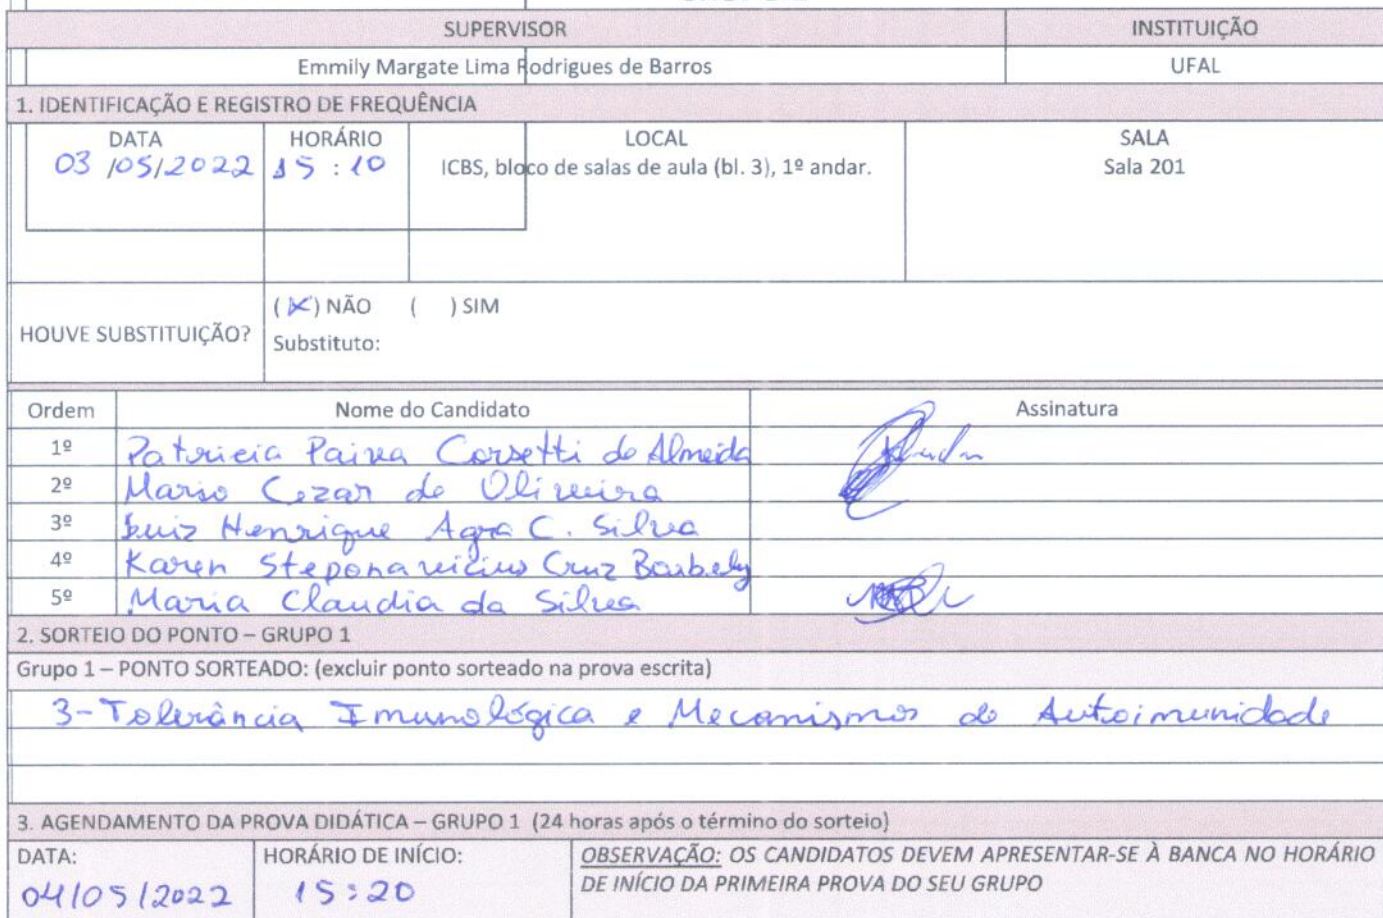 SUPERVISOR INSTITUIÇÃO
Emmily Margate Lima Rodrigues de Barros UFAL
1. IDENTIFICAÇÃO E REGISTRO DE FREQUÊNCIA
DATA HORÁRIO LOCAL SALA
03/05/2022 15:10 ICBS, bloco de salas de aula (bl. 3), 1º andar. Sala 201
HOUVE SUBSTITUIÇÃO? (X) NÃO ( ) SIM
Substituto:
Ordem Nome do Candidato Assinatura
1º Patricia Paiva Corsetti de Almeida
2º Mario Cezar de Oliveira
3º Luiz Henrique Agra C. Silva
4º Karen Steponavicius Cruz
5º Maria Claudia da Silva
2. SORTEIO DO PONTO – GRUPO 1
Grupo 1 – PONTO SORTEADO: (excluir ponto sorteado na prova escrita)
3-Tolerância Imunológica e Mecanismos de Autoimunidade
3. AGENDAMENTO DA PROVA DIDÁTICA – GRUPO 1 (24 horas após o término do sorteio)
DATA: HORÁRIO DE INÍCIO: OBSERVAÇÃO: OS CANDIDATOS DEVEM APRESENTAR-SE À BANCA NO HORÁRIO
04/05/2022 15:20 DE INÍCIO DA PRIMEIRA PROVA DO SEU GRUPO